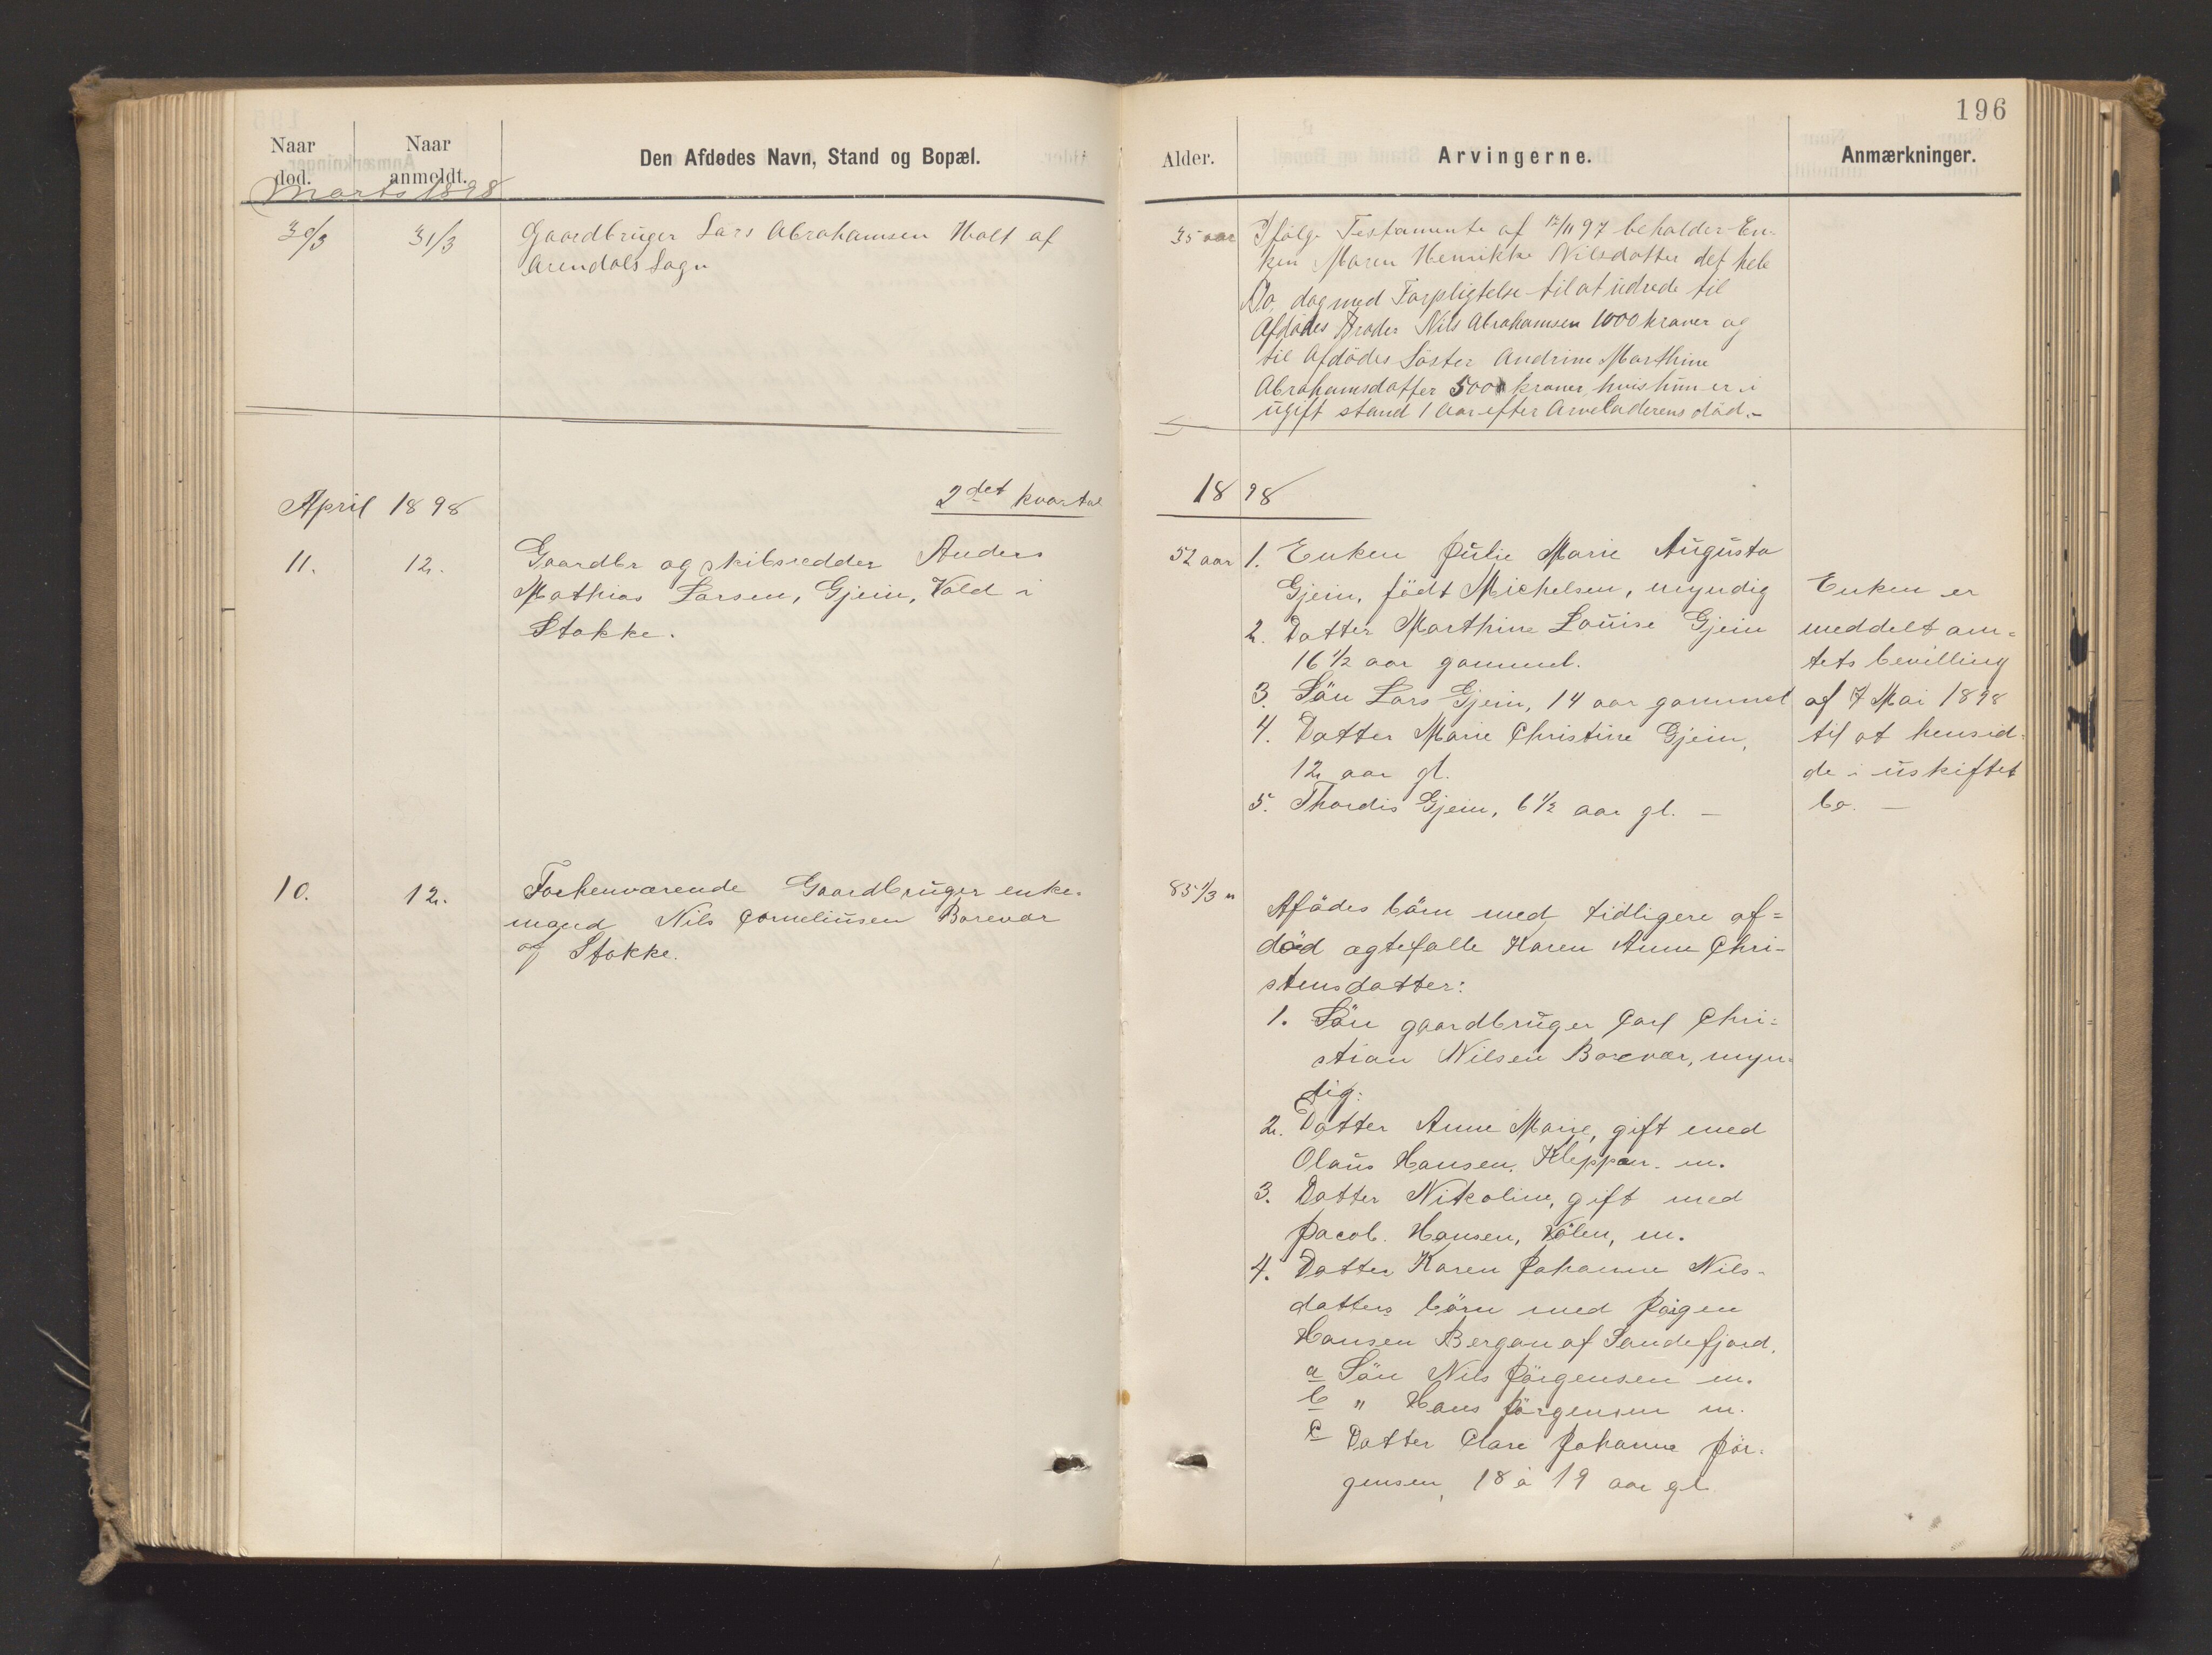 196
Naar død.
Naar anmeldt.
Den Afdødes Navn, Stand og Bopæl.
Alder.
Arvingerne.
Anmærkninger.
Marts 1898
30/3
31/3
Gaardbruger Lars Abrahamsen Holt af
Arendals Sogn
35 aar
Ifølge Testamente af 12/11 97 beholder En-
ken Maren Henrikke Nilsdatter det hele
Bo, dog med Forpligtelse til at udrede til
Afdødes Broder Nils Abrahamsen 1000 kroner og
til Afdödes Söster Andrine Marthine
Abrahamsdatter 500 kroner, hvis hun er i
ugift stand 1 Aar efter Arveladerens död.-
April 1898
2det kvartal
1898
11.
12.
Gaardbr og skibsredder Anders
Mathias Larsen, Gjein, Vold i
Stokke.
52 aar
1. Enken Julie Marie Augusta
Gjein, født Michelsen, myndig
2. Datter Marthine Louise Gjein
16 1/2 aar gammel.
3. Sön Lars Gjein, 14 aar gammel
4. Datter Marie Christine Gjein,
12 aar gl.
5. Thordis Gjein, 6 1/2 aar gl. —
Enken er
meddelt am=
tets bevilling
af 7 Mai 1898
til at hensid-
de i uskiftet
bo. —
10.
12.
Forhenværende Gaardbruger enke-
mand Nils Corneliusen Borevar
af Stokke.
85 1/3 "
Afödes börn med tidligere af=
død ægtefalle Karen Anne Chri-
stensdatter:
1. Sön gaardbruger Carl Chri=
stian Nilsen Borevar, myn=
dig.
2. Datter Anne Marie, gift med
Olaus Hansen, Kleppan. m.
3. Datter Nikoline, gift med
Jacob Hansen, Vølen, m.
4. Datter Karen Johanne Nils-
datters börn med Jörgen
Hansen Bergan af Sandefjord.
a Sön Nils Jörgensen m.
b " Hans Jörgensen m.
c Datter Clara Johanne Jör-
gensen, 18 à 19 aar gl